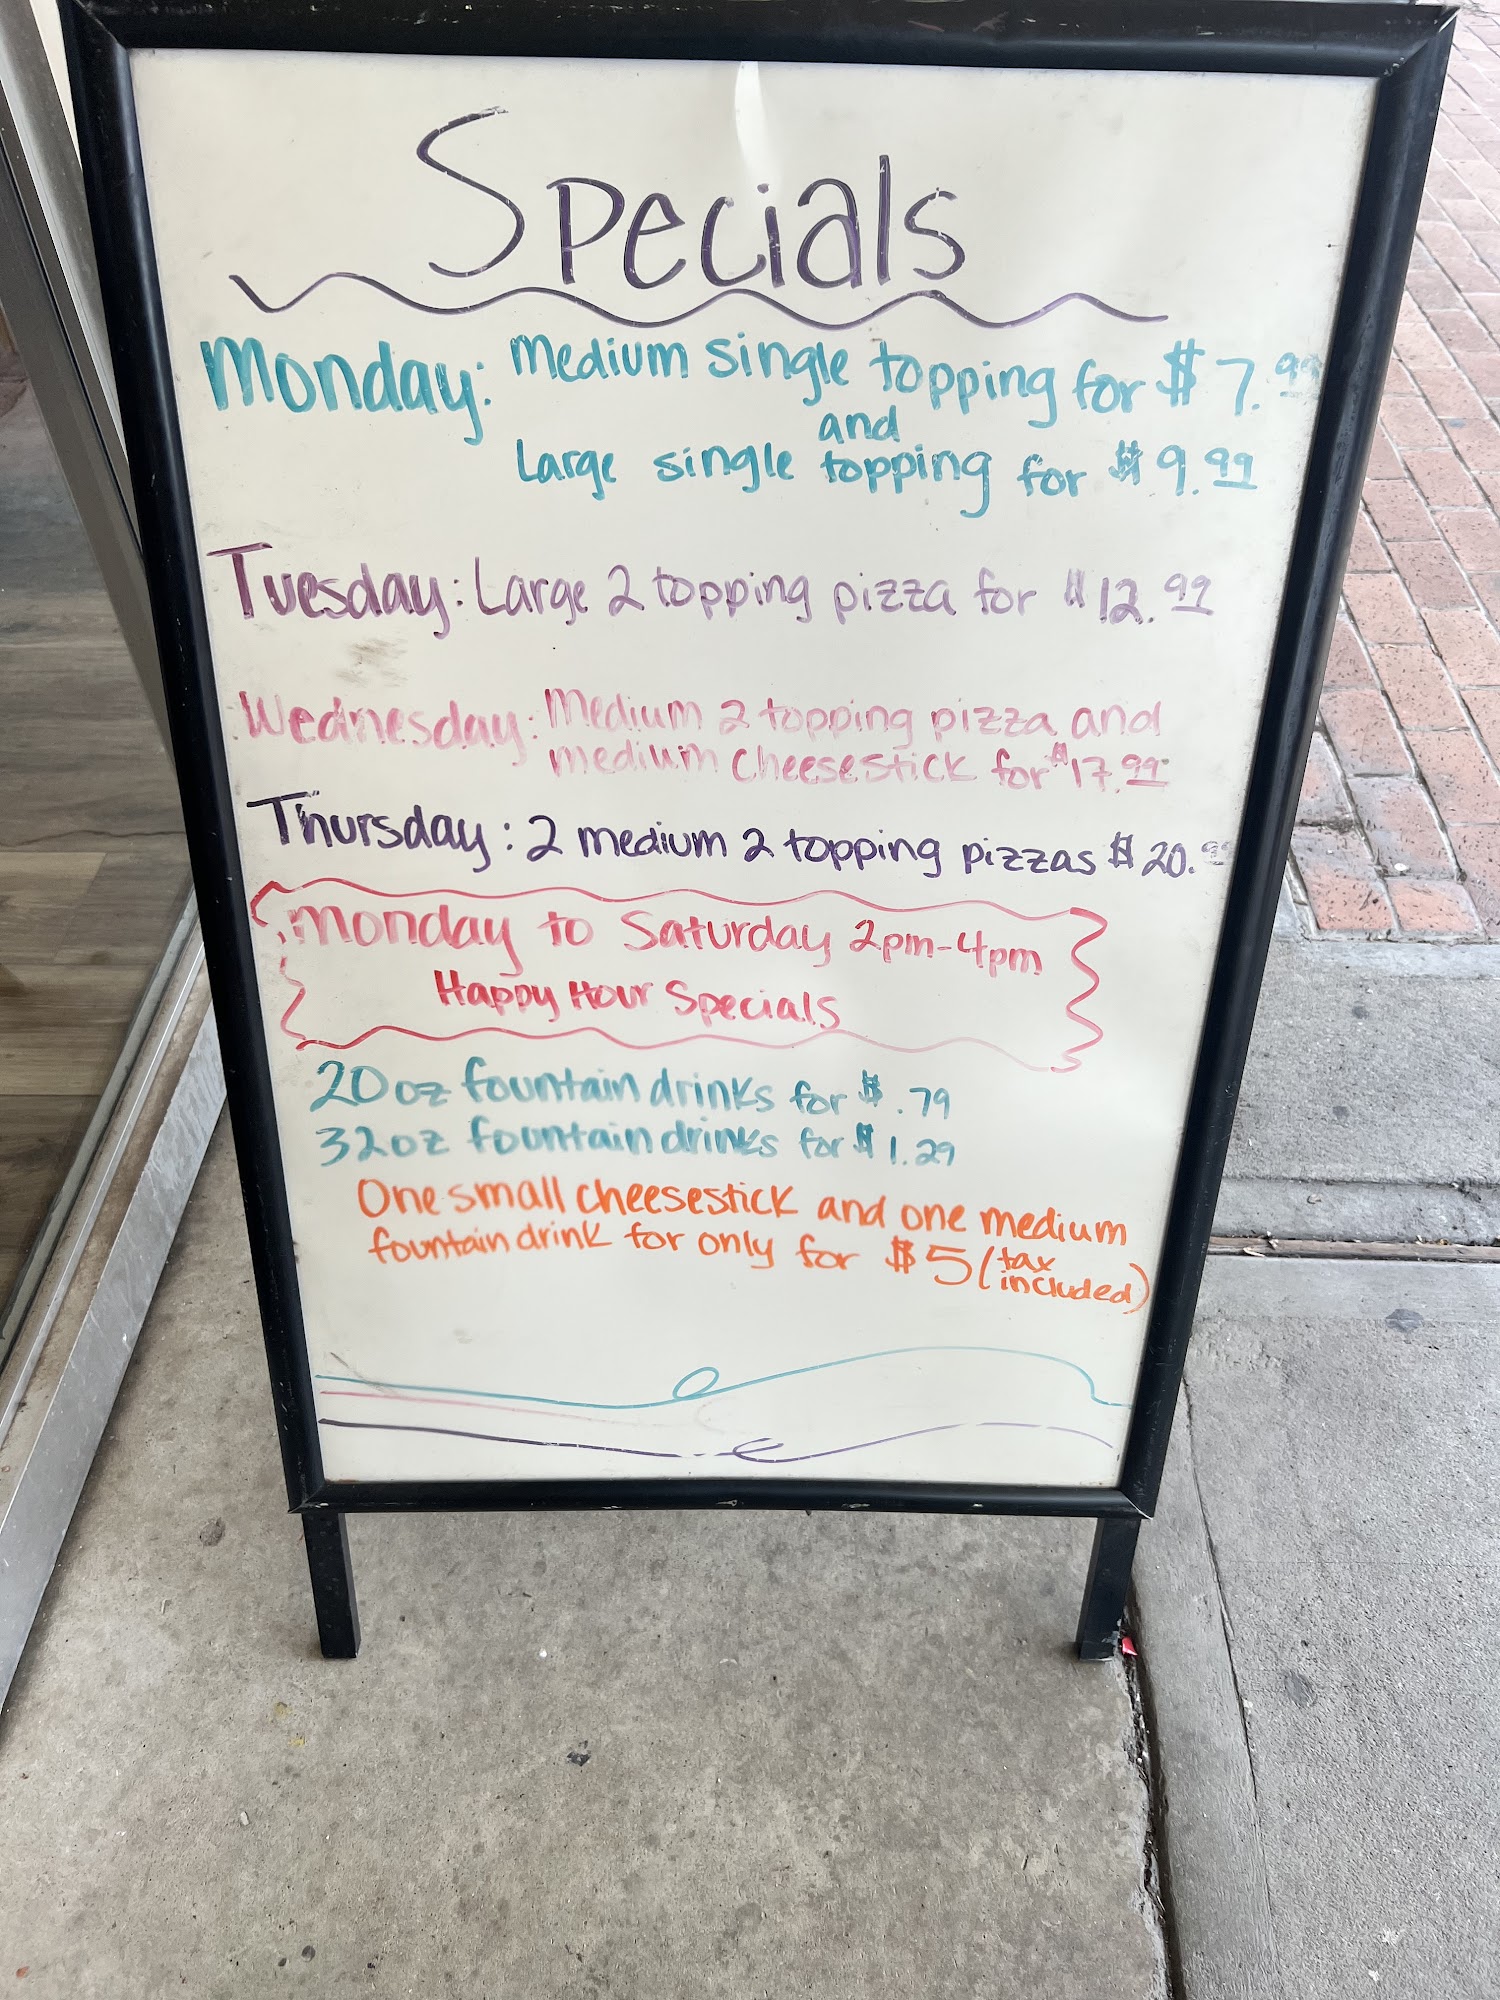 Specials
Monday: Medium single topping for $7.99
and
Large single topping for $9.99
Tuesday: Large 2 topping pizza for $12.99
Wednesday: Medium 2 topping pizza and
medium cheesestick for $17.99
Thursday: 2 medium 2 topping pizzas $20.99
Monday to Saturday 2pm-4pm
Happy Hour Specials
20oz fountain drinks for $.79
32oz fountain drinks for $1.29
One small cheesestick and one medium
fountain drink for only for $5 (tax
included)